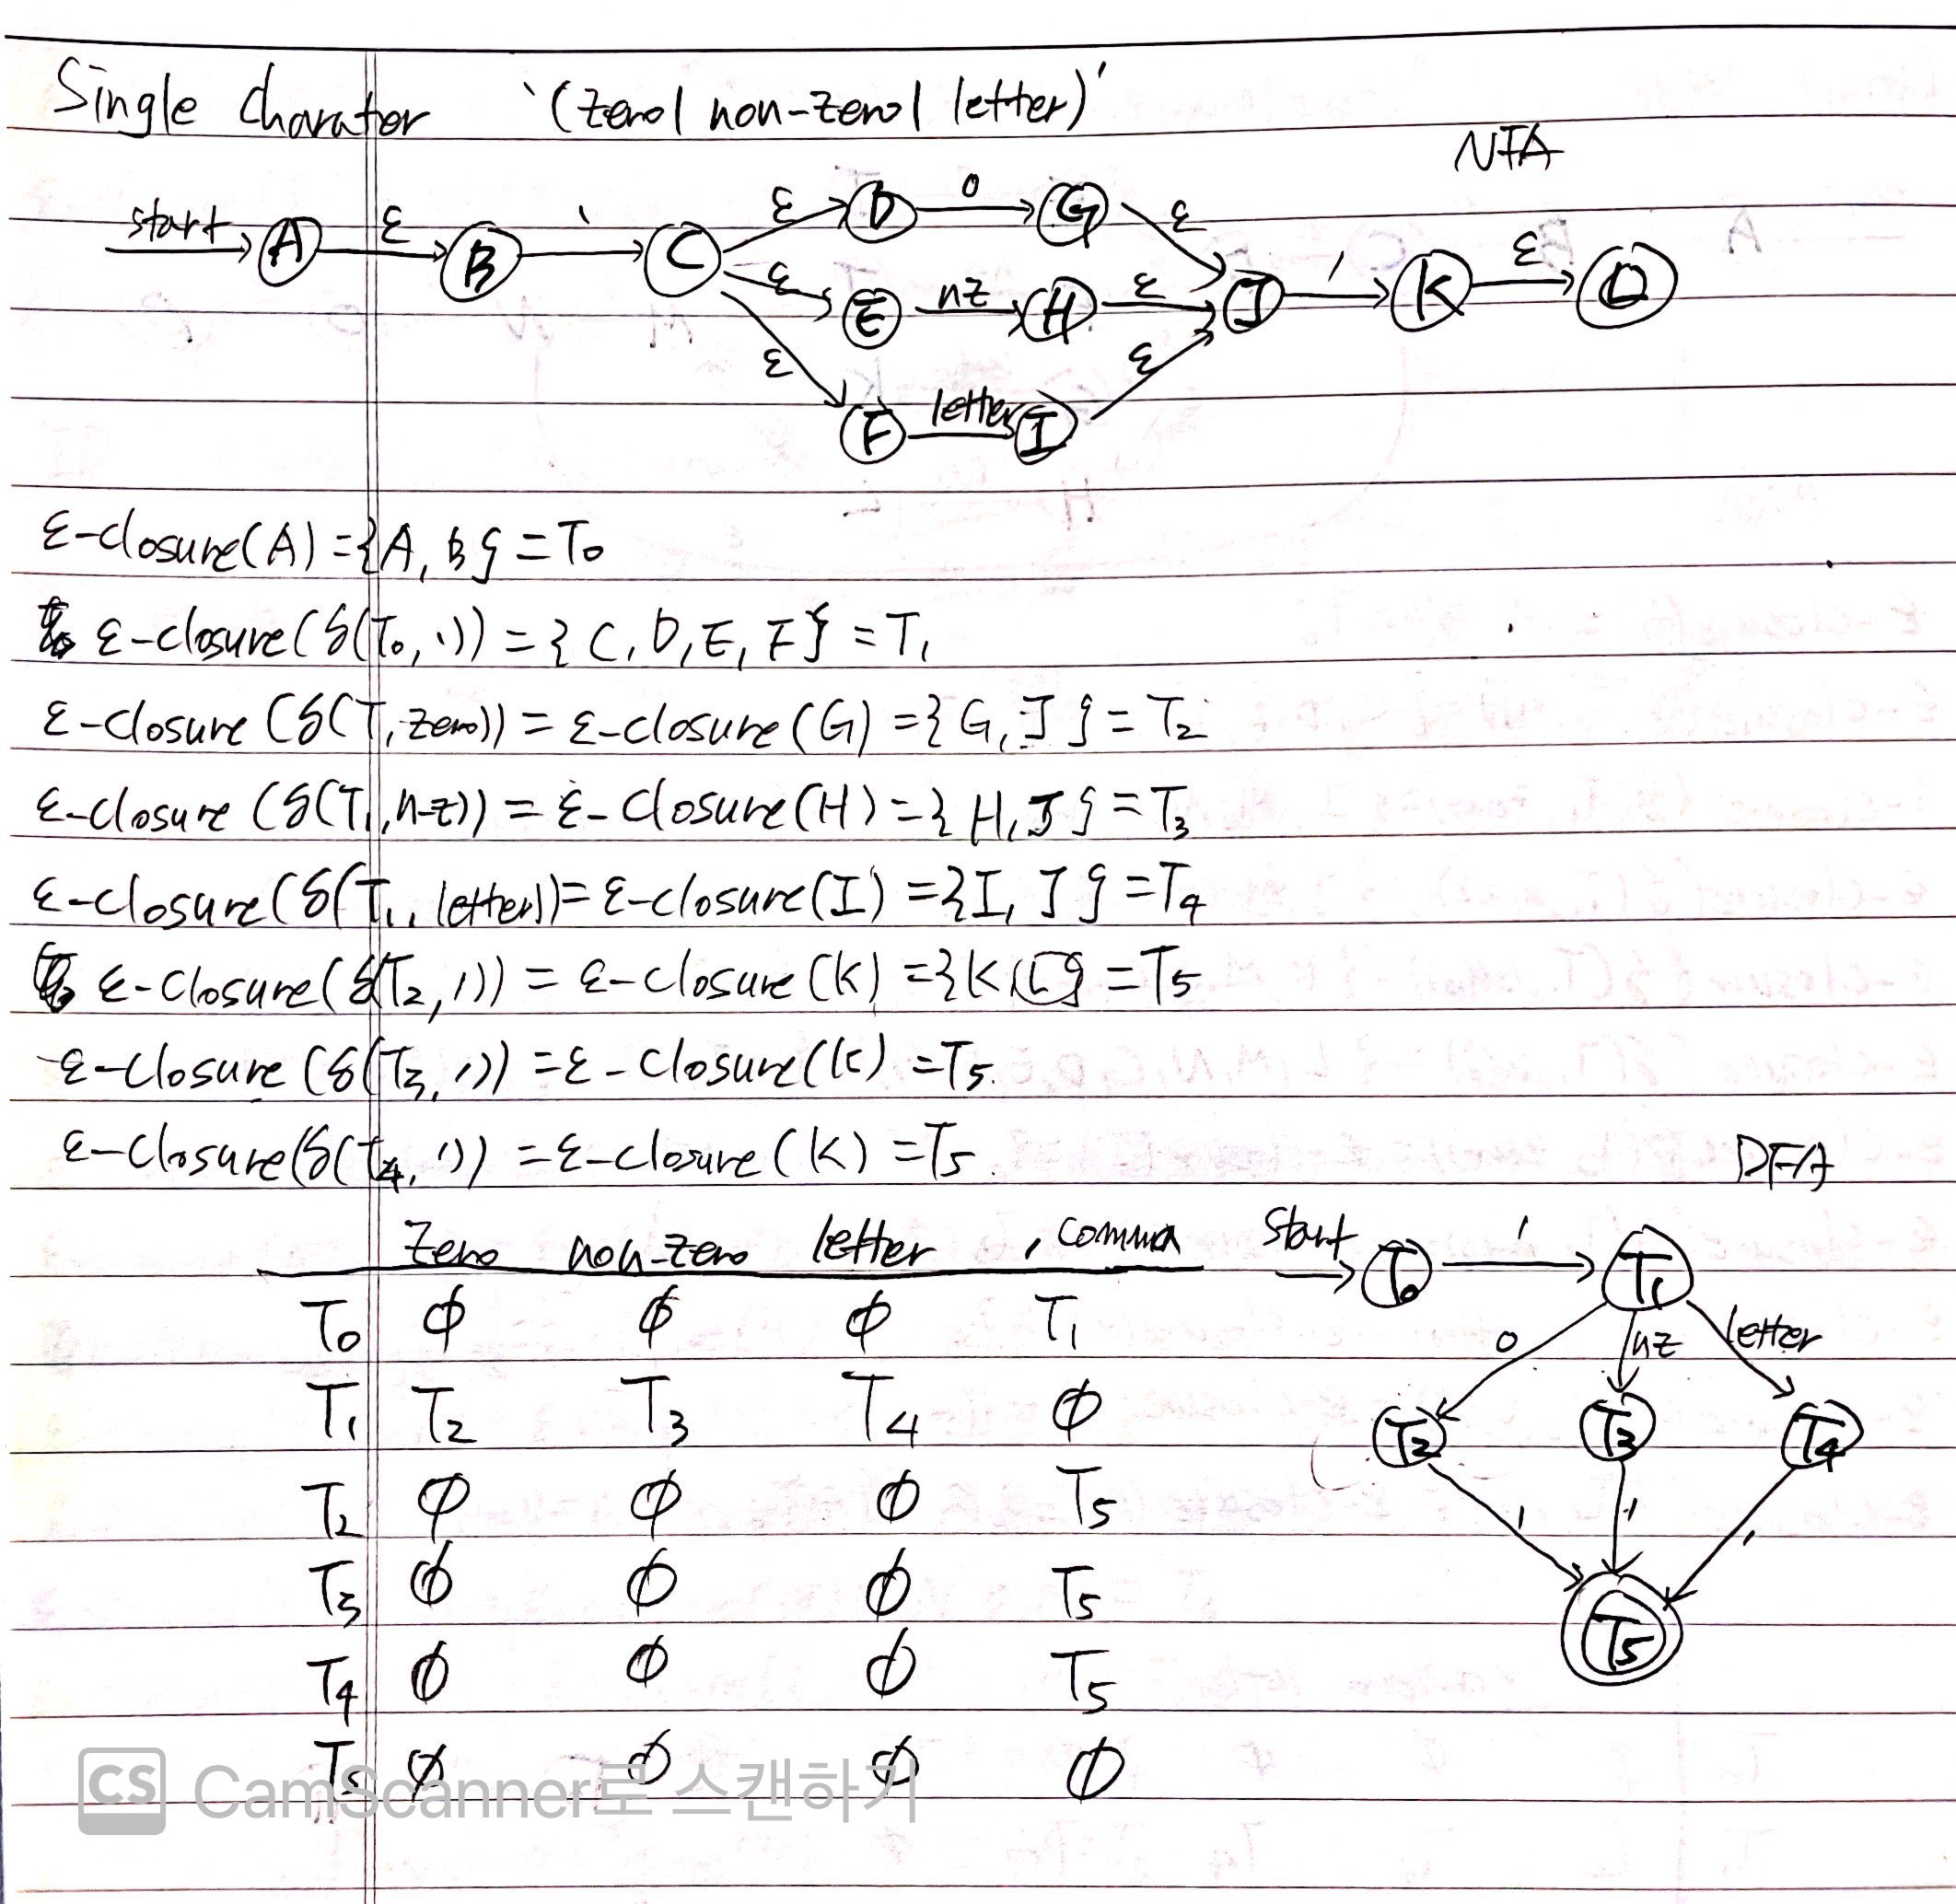 Single charater '(zero| non-zero| letter)'
NFA
start A ε B ' C ε D 0 G ε
ε E nz H ε J ' K ε
ε F letter I ε
ε-closure(A) = {A, B} = T₀
ε-closure(δ(T₀, ')) = {C, D, E, F} = T₁
ε-closure(δ(T₁, zero)) = ε-closure(G) = {G, J} = T₂
ε-closure(δ(T₁, n-z)) = ε-closure(H) = {H, J} = T₃
ε-closure(δ(T₁, letter)) = ε-closure(I) = {I, J} = T₄
ε-closure(δ(T₂, ')) = ε-closure(K) = {K, L} = T₅
ε-closure(δ(T₃, ')) = ε-closure(K) = T₅.
ε-closure(δ(T₄, ')) = ε-closure(K) = T₅.
DFA
zero non-zero letter , comma
T₀ ϕ ϕ ϕ T₁
T₁ T₂ T₃ T₄ ϕ
T₂ ϕ ϕ ϕ T₅
T₃ ϕ ϕ ϕ T₅
T₄ ϕ ϕ ϕ T₅
T₅ ϕ ϕ ϕ ϕ
start T₀ ' T₁
0 nz letter
T₂ T₃ T₄
' ' '
T₅
CS CamScanner로 스캔하기